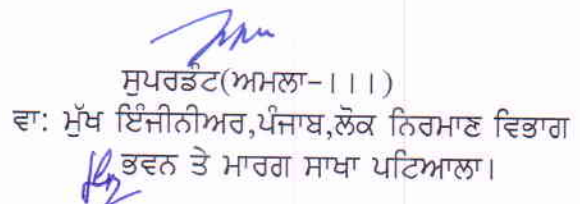 ਸੁਪਰਡੰਟ(ਅਮਲਾ-।।।)
ਵਾ: ਮੁੱਖ ਇੰਜੀਨੀਅਰ,ਪੰਜਾਬ,ਲੋਕ ਨਿਰਮਾਣ ਵਿਭਾਗ
ਭਵਨ ਤੇ ਮਾਰਗ ਸਾਖਾ ਪਟਿਆਲਾ।